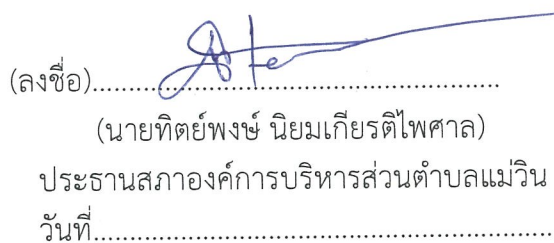 (ลงชื่อ)......................................................
(นายทิตย์พงษ์ นิยมเกียรติไพศาล)
ประธานสภาองค์การบริหารส่วนตำบลแม่วิน
วันที่..............................................................